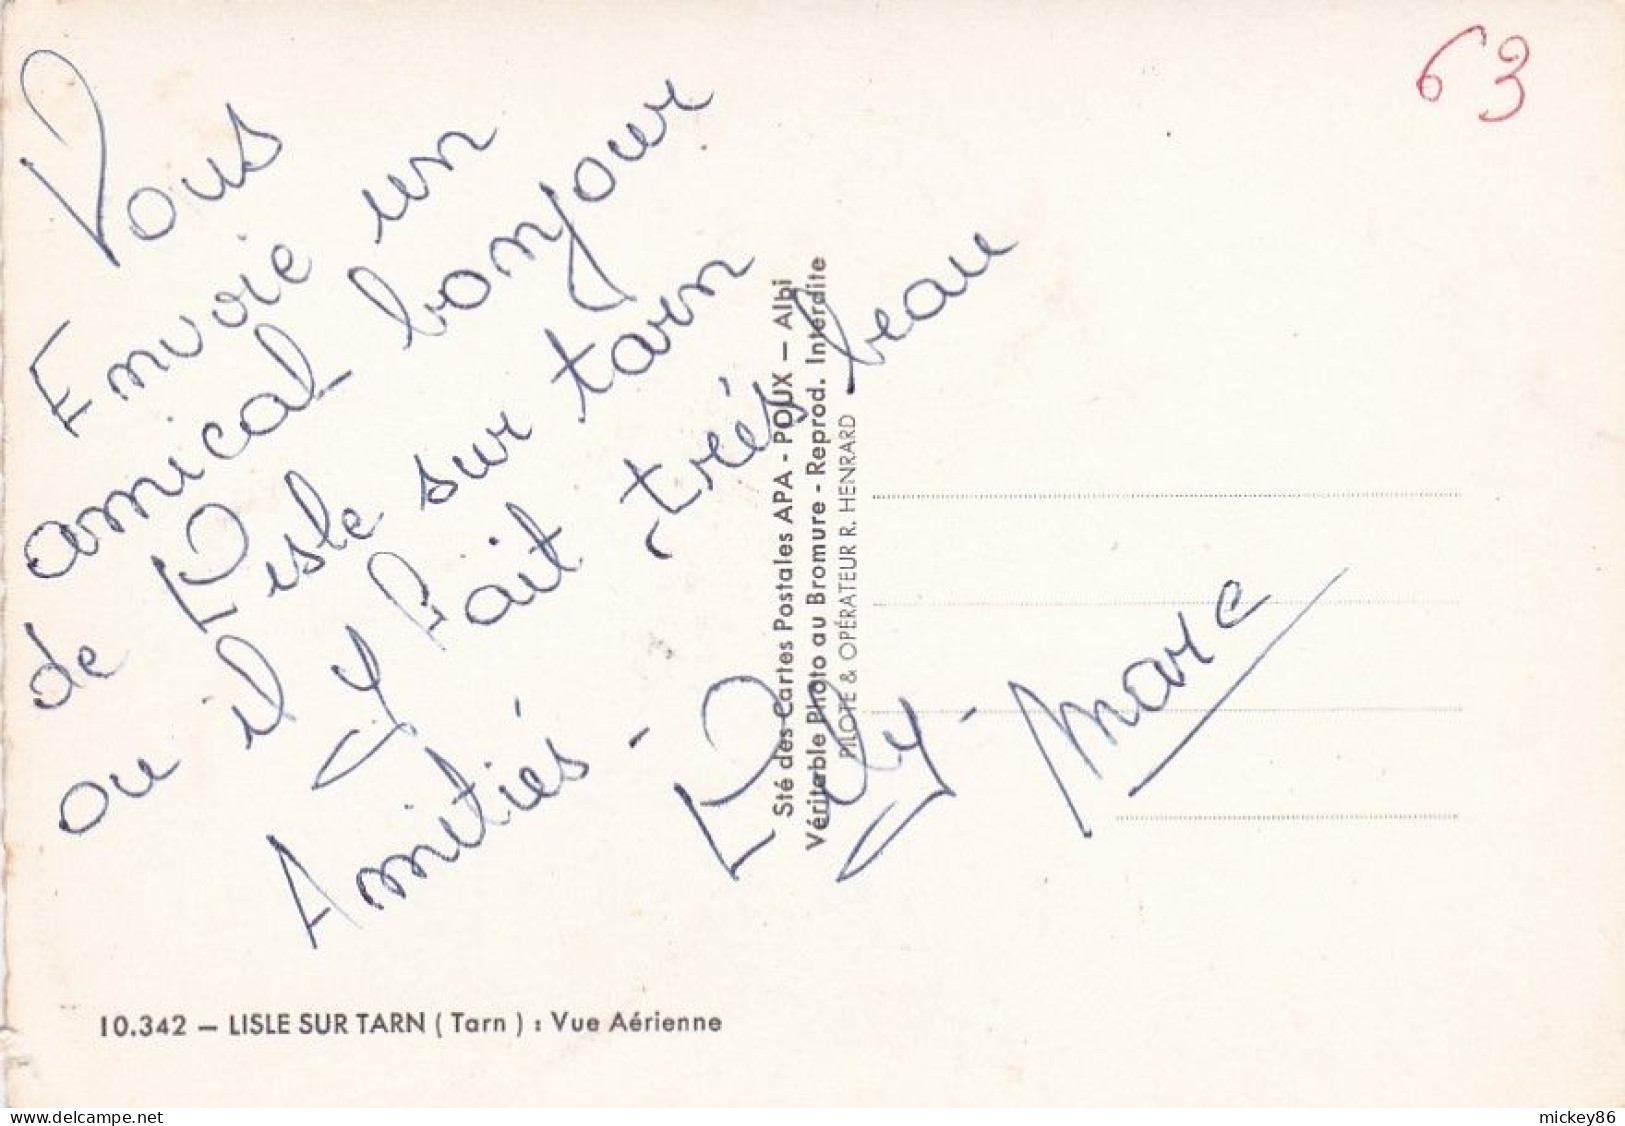 63
Vous
Envoie un
amical bonjour
de Lisle sur tarn
ou il y fait trés beau
Amitiés - - Marc
Sté des Cartes Postales APA - POUX — Albi
Véritable Photo au Bromure - Reprod. Interdite
PILOTE & OPÉRATEUR R. HENRARD
10.342 — LISLE SUR TARN ( Tarn ) : Vue Aérienne
delcampe.net
mickey86